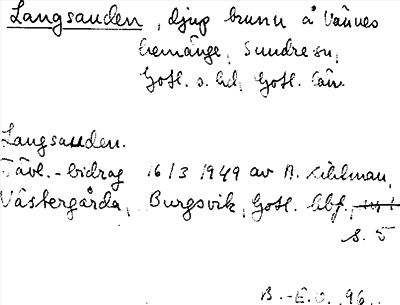 Langsauden, djup brunn å Vännes
hemänge, Sundre sn,
Gotl. s. hd, Gotl. län.
Langsauden.
Tävl.-bidrag 16/3 1949 av A. Kihlman,
Västergårda, Burgsvik, Gotl. bbf.,
s. 5
B.-E.O. 96.